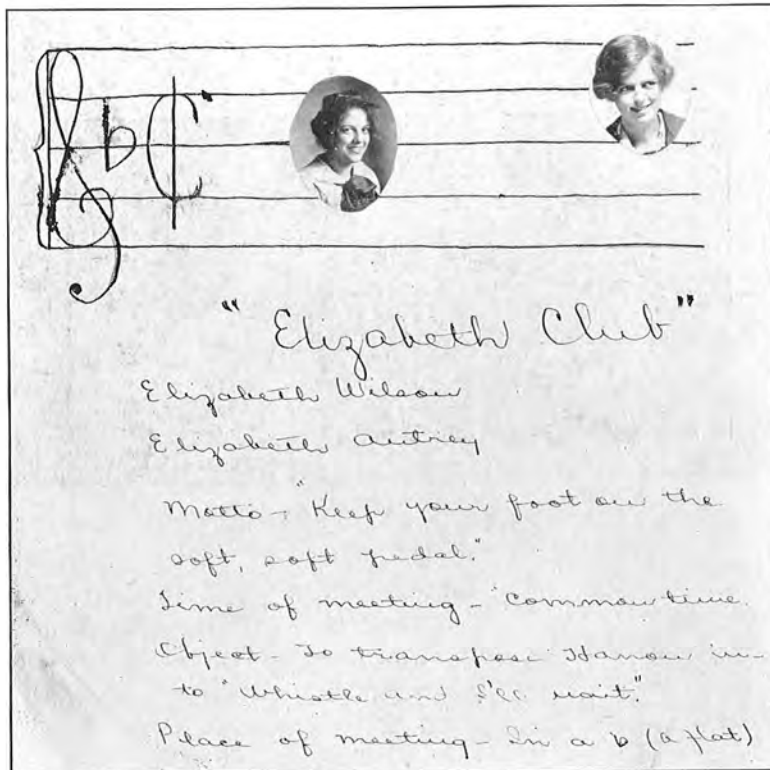 "Elizabeth Club"
Elizabeth Wilson
Elizabeth Autrey
Motto - "Keep your foot on the
soft, soft pedal."
Time of meeting - Common time.
Object - To transpose Hanon in-
to "Whistle and I'll wait."
Place of meeting - In a ♭ (a flat)